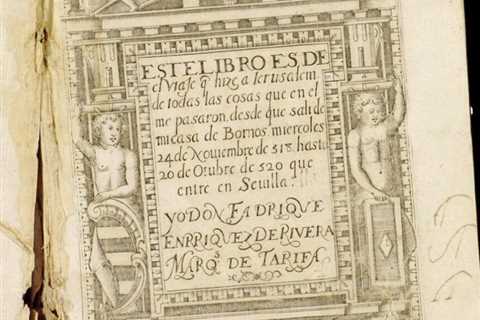 ESTE LIBRO ES DE
el viaje q̄ hize a Ierusalem
de todas las cosas que en el
me pasaron, desde que sali de
mi casa de Bornos, miercoles
24 de Noviembre de 518. hasta
20 de Otubre de 520 que
entre en Sevilla.
YO DON FADRIQUE
ENRRIQUEZ DE RIVERA
MARQ.s DE TARIFA